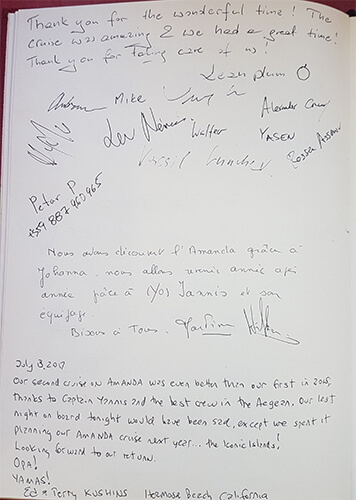 Thank you for the wonderful time! The
cruise was amazing & we had a great time!
Thank you for Taking care of us!
Leanplum
Mike
Alexander
Lev Walter YASEN
Rossen
Petar P
+359 887 960 965
Nous avons découvert l'Amanda grâce à
Johanna. nous allons revenir année après
année grâce à (Yo) Iannis et son
équipage.
Bisous à Tous.
July 3, 2017
Our second cruise on AMANDA was even better than our first in 2015,
thanks to Captain Yannis and the best crew in the Aegean. Our last
night on board tonight would have been sad, except we spent it
planning our AMANDA cruise next year... the Iconic Islands!
Looking forward to our return.
OPA!
YAMAS!
Ed & Terry KUSHINS Hermosa Beach California